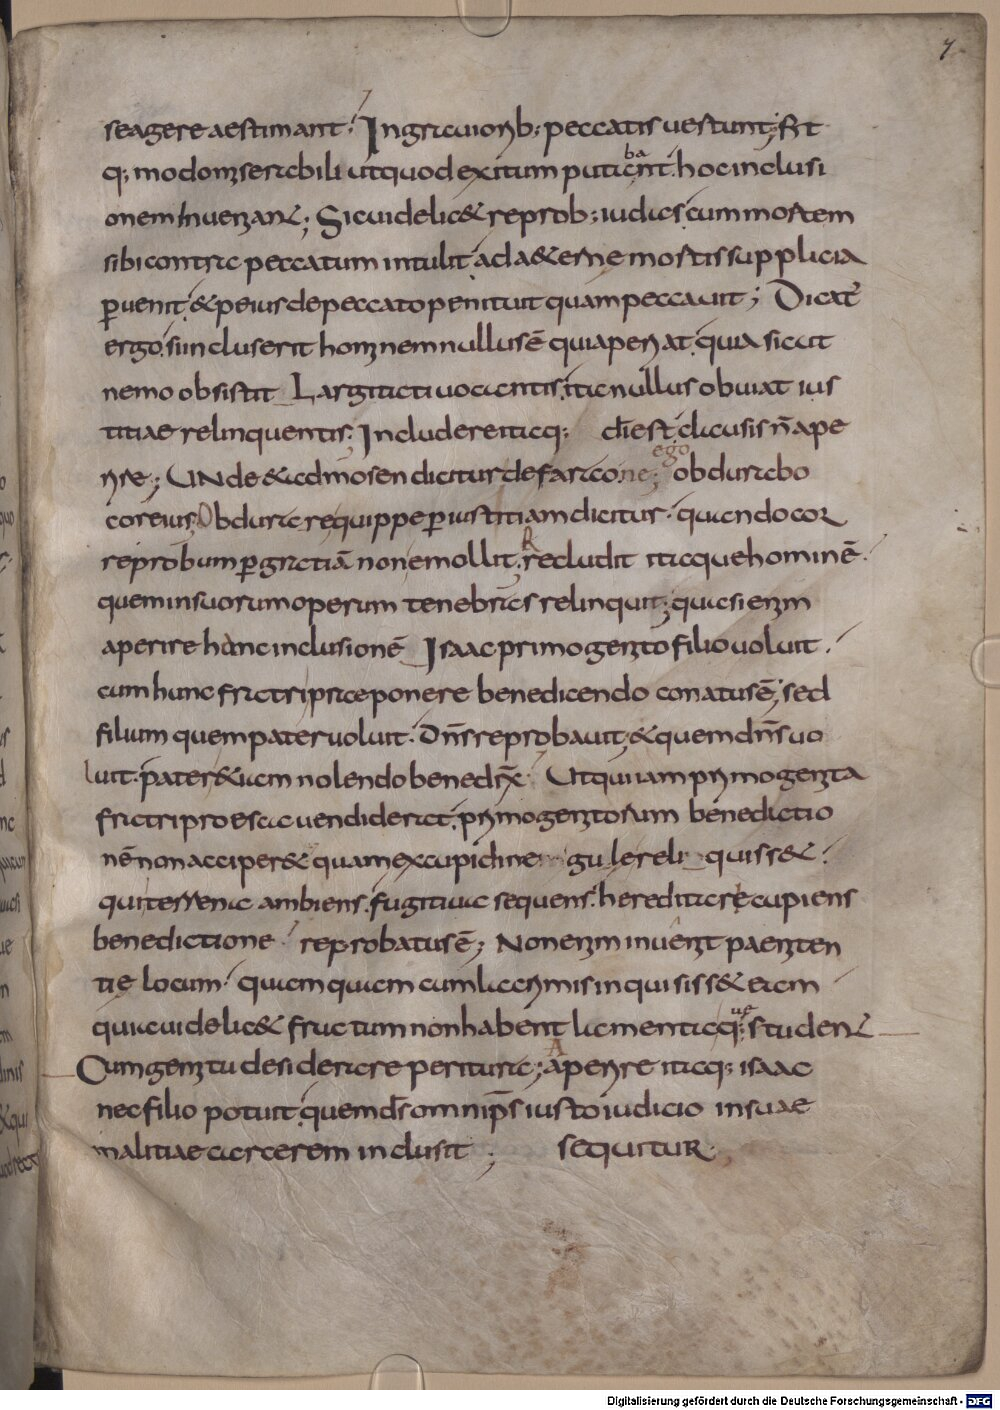 7
se agere aestimant. In grauiorib; peccatis uertunt; Fit
q; modo miserabili ut quod exitum putant ba hoc inclusi
onem inueniant; Sic uidelic& reprob; iudas cum mortem
sibi contra peccatum intulit ad a&ernae mortis supplicia
ꝑuenit & peius de peccato penituit quam peccauit; Dicat̄
ergo. si incluserit hominem nullus ē qui aperiat. quia sicut
nemo obsistit Largitati uocantis, ita nullus obuiat ius
titiae relinquentis. Includere itaq; dī est. clausis n̄ ape
rire; UNde & ad mosen dicitur de faraone; ego obdurabo
cor eius. Obdurare quippe ꝑ iustitiam dicitur. quando cor
reprobum ꝑ gratiā non emollit. Recludit itaque hominē.
quem in suorum operum tenebris relinquit; quasi enim
aperire hanc inclusionē Isaac primogenito filio uoluit.
cum hunc fratri praeponere benedicendo conatus ē; sed
filium quem pater uoluit. Dn̄s reprobauit; & quem dn̄s uo
luit. pater & iam nolendo benedix̄. Ut qui iam primogenita
fratri pro esca uendiderat. primogenitorum benedictio
nē non acciper& quam ex cupidine gulae reliquiss&.
qui terrena ambiens. fugitiua sequens. hereditare cupiens
benedictione reprobatus ē; Non enim inuenit paeniten
tię locum. quamquam cum lacrimis inquisiss& eam
quia uidelic& fructum non habent lamentaq; ue student
Cum gemitu desiderare peritura; Aperire itaq; isaac
nec filio potuit. quem d̄s omnip̄s iusto iudicio in suae
malitiae carcerem inclusit; sequitur.
Digitalisierung gefördert durch die Deutsche Forschungsgemeinschaft - DFG